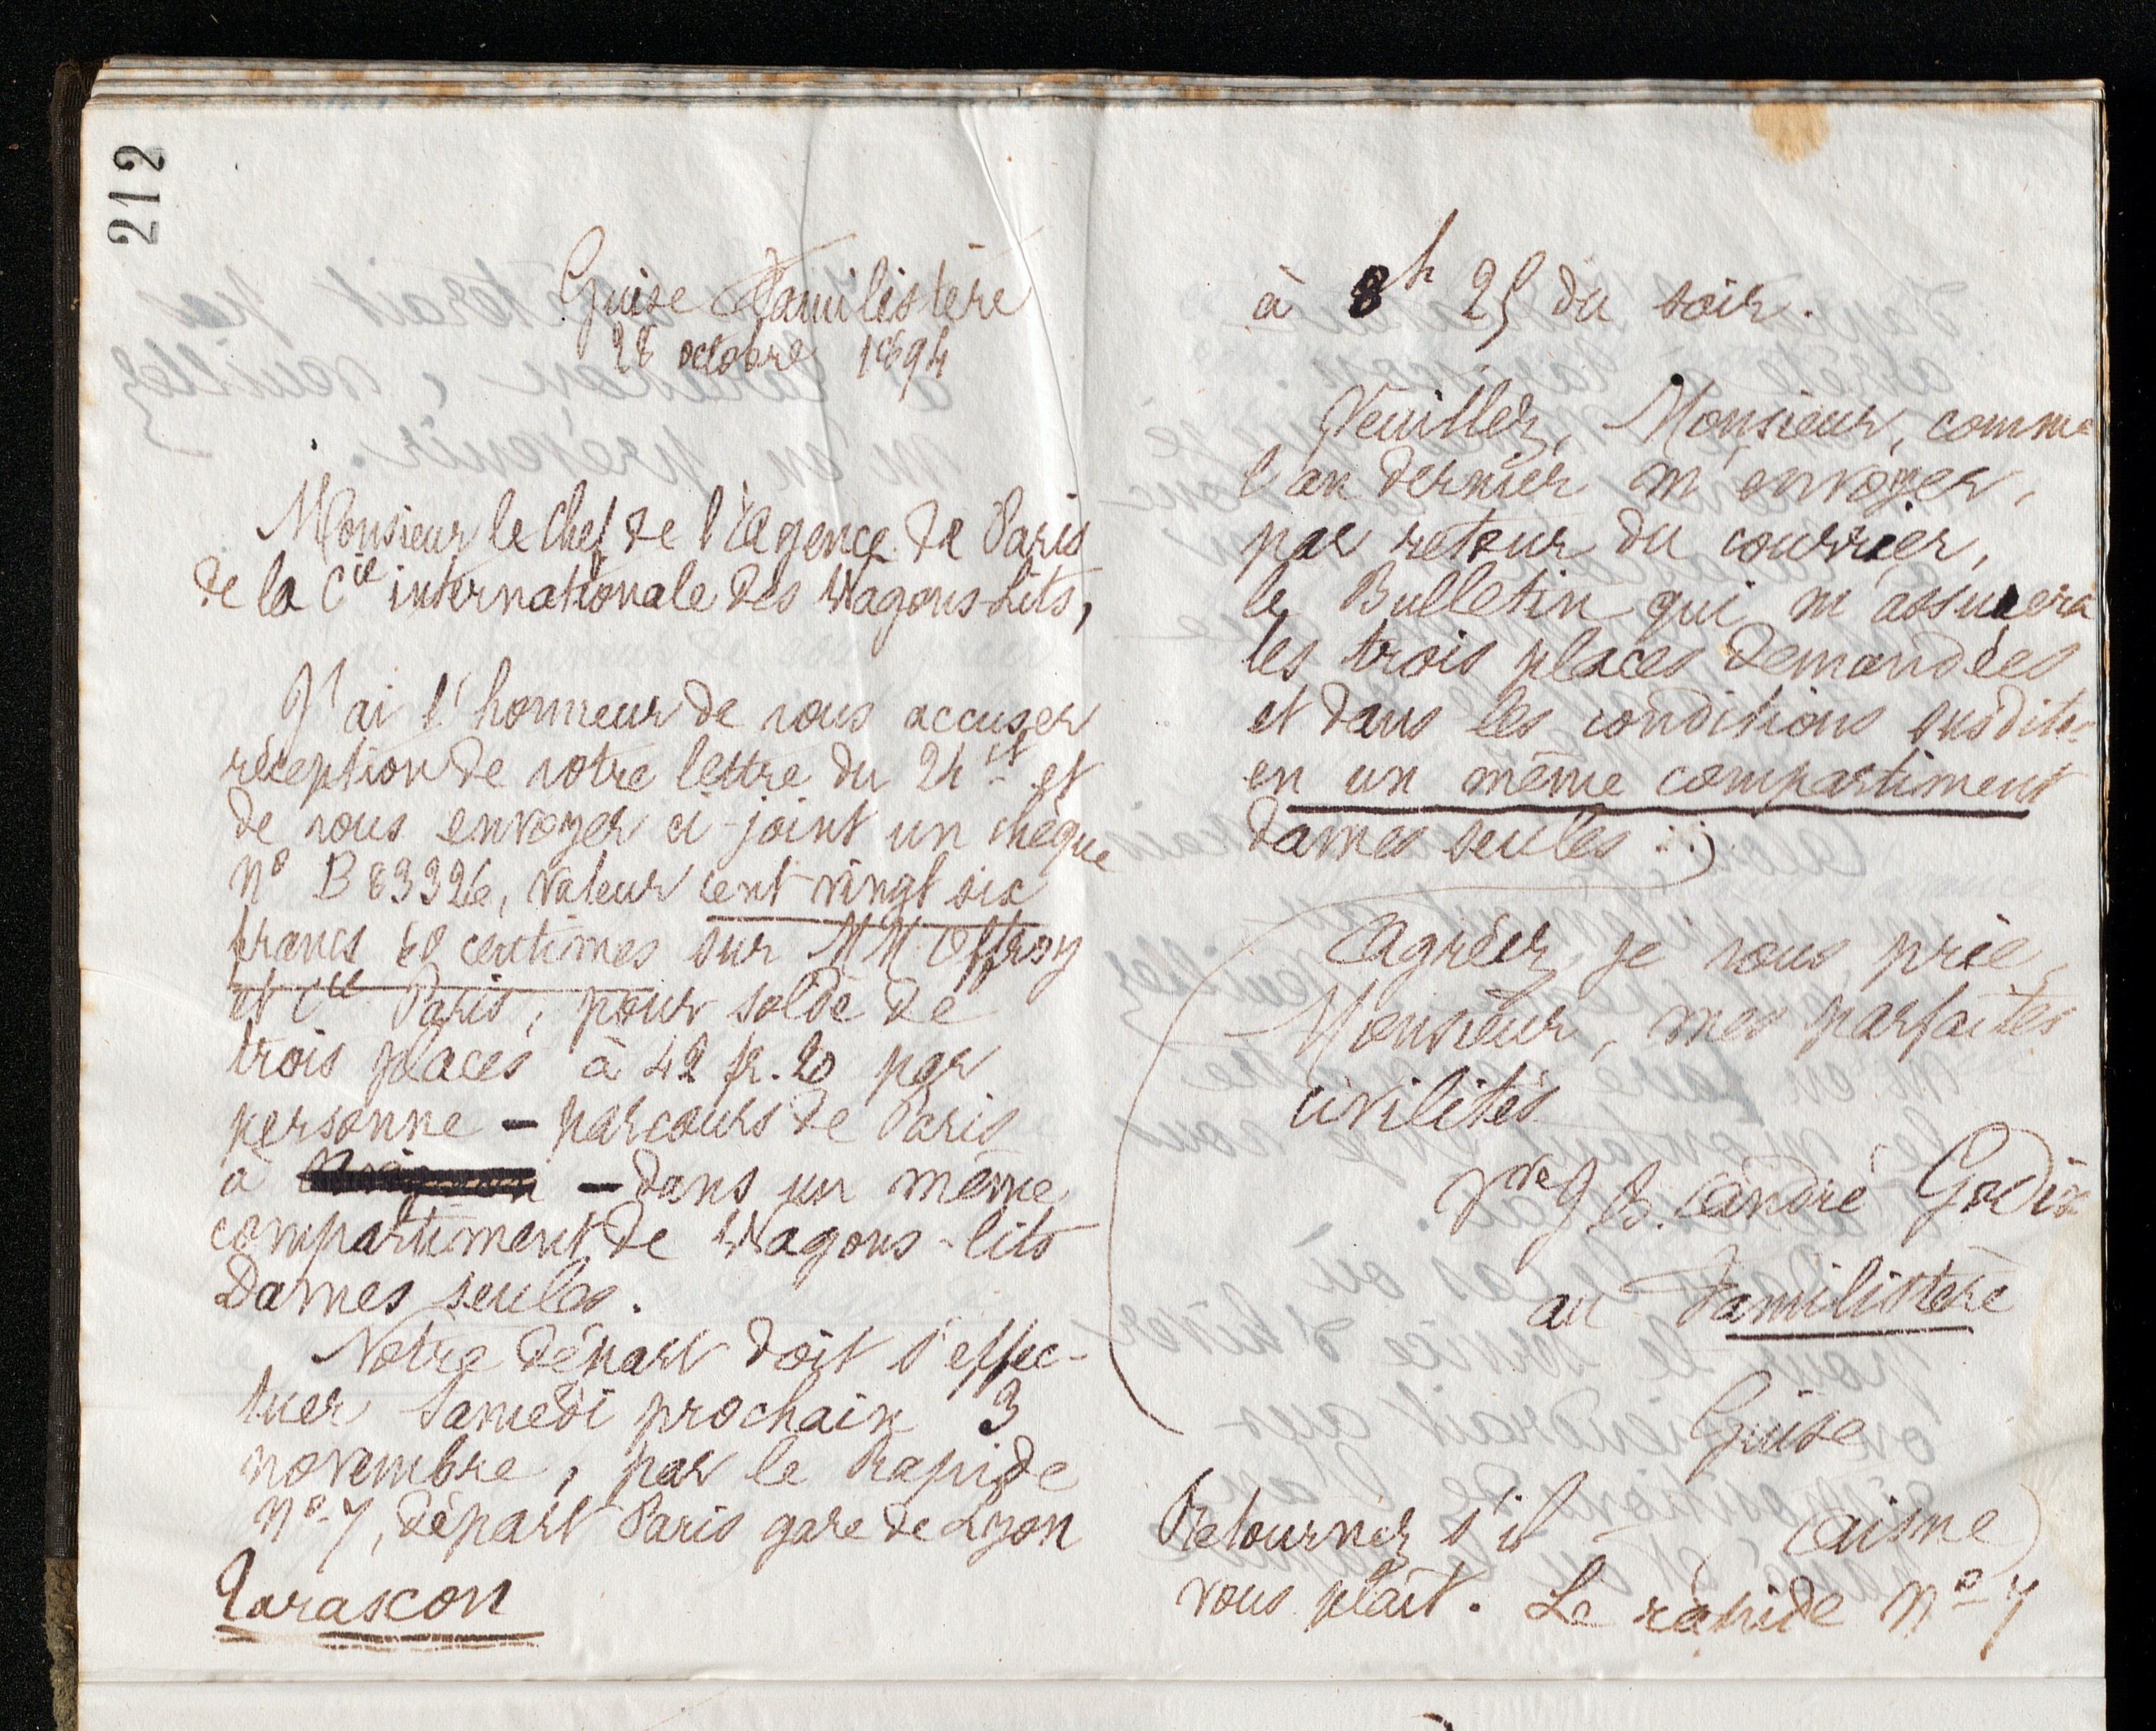 212
Guise Familistère
28 octobre 1894
Monsieur le Chef de l'Agence de Paris
de la Cie internationale des Wagons-Lits,
J'ai l'honneur de vous accuser
réception de votre lettre du 24 ct et
de vous envoyer ci-joint un chèque
No B 83326, valeur cent vingt six
francs 60 centimes sur MM. Offroy
et Cie Paris, pour solde de
trois places à 42 fr. 20 par
personne - parcours de Paris
à - dans un même
compartiment de Wagons-lits
Dames seules.
Notre départ doit s'effec-
tuer Samedi prochain 3
novembre, par le Rapide
No 7, départ Paris gare de Lyon
Tarascon
à 8h 25 du soir.
Veuillez, Monsieur, comme
l'an dernier m'envoyer,
par retour du courrier,
le Bulletin qui m'assurera
les trois places demandées
et dans les conditions susdites
en un même compartiment
dames seules
Agréez, je vous prie,
Monsieur, mes parfaites
civilités
Vve J. B. André Godin
au Familistère
Guise
Retournez s'il (Aisne)
vous plaît. Le rapide No 7